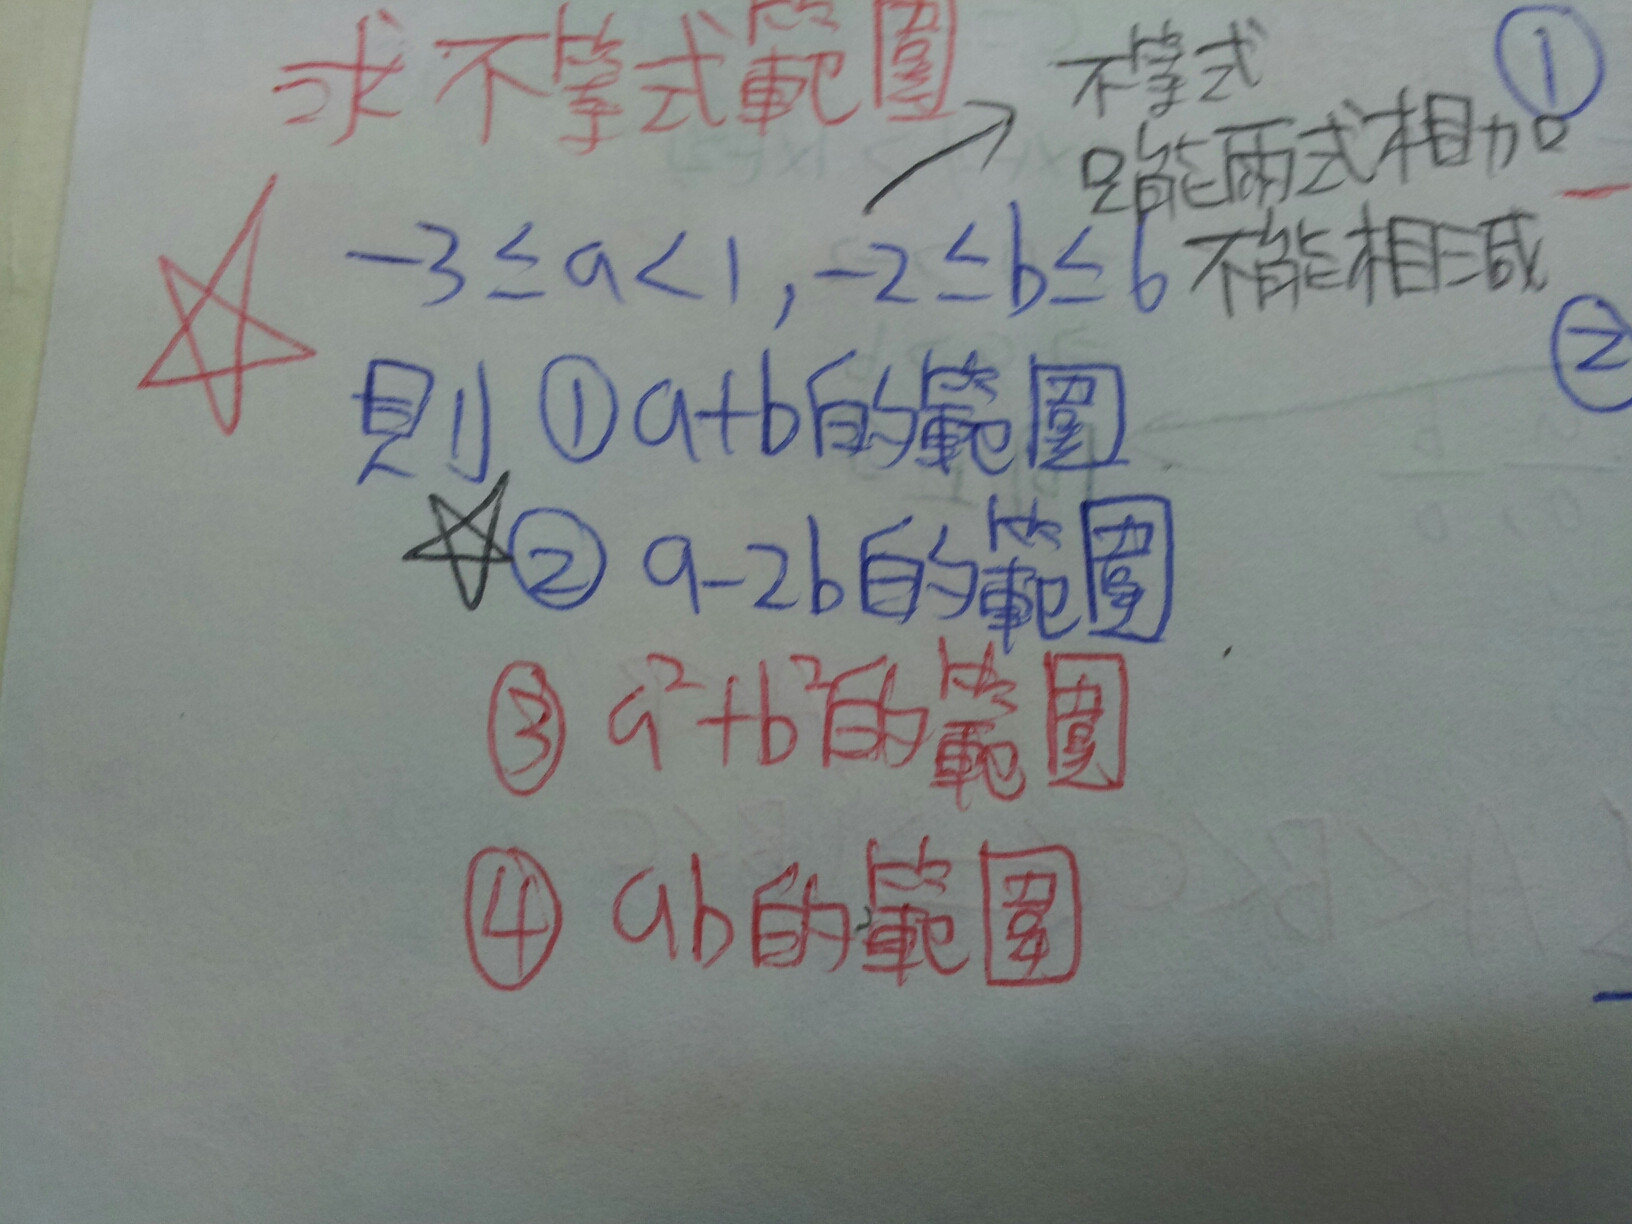 求不等式範圍
不等式
只能兩式相加
不能相減
①
-3≤a<1,-2≤b≤6
②
則①a+b的範圍
②a-2b的範圍
③a²+b²的範圍
④ab的範圍